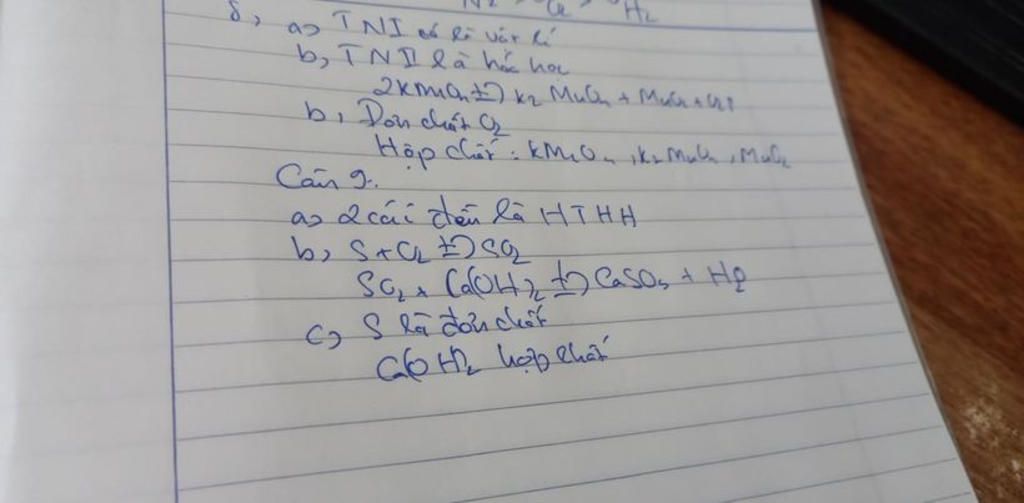 N2 O2 H2
8, a, TN I có là vật lí
b, TN II là hóa học
2KMnO4 t°→ K2MnO4 + MnO2 + O2↑
b, Đơn chất O2
Hợp chất : KMnO4, K2MnO4, MnO2
Câu 9:
a, 2 cái đều là HTHH
b, S + O2 t°→ SO2
SO2 + Ca(OH)2 t°→ CaSO3 + H2
c, S là đơn chất
Ca(OH)2 hợp chất